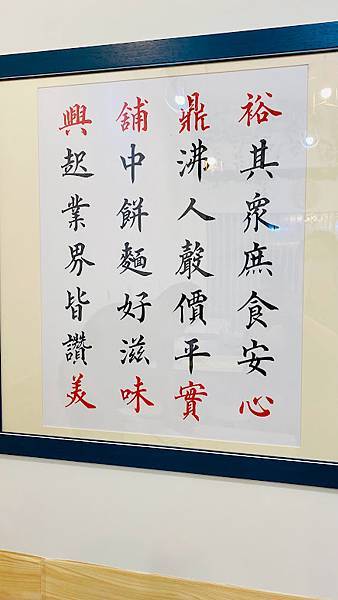 裕其眾庶食安心
鼎沸人聲價平實
舖中餅麵好滋味
興起業界皆讚美